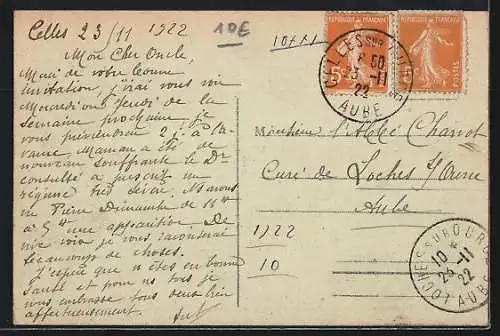 Celles 23/11 1922
10€
Mon Cher Oncle,
Merci de votre bonne
invitation, j'irai vous voir
Mercredi ou Jeudi de la
semaine prochaine, je
vous préviendrai 2 j. à l'a-
vance. Maman a été de
nouveau souffrante le Dr
consulté a prescrit un
régime très sévère.
Pierre Dimanche de
à 5 une apparition. De
vive voix je vous raconterai
beaucoup de choses.
J'espère que v. êtes en bonne
santé et pour nos tous je
vous embrasse tous deux bien
affectueusement
REPUBLIQUE FRANÇAISE
5c POSTES
REPUBLIQUE FRANÇAISE
5c POSTES
CELLES SUR OURCE
23-11
22
AUBE
Monsieur l'Abbé Charvot
Curé de Loches s/Ource
Aube
1922
10
LOCHES SUR OURCE
10
23-11
22
AUBE